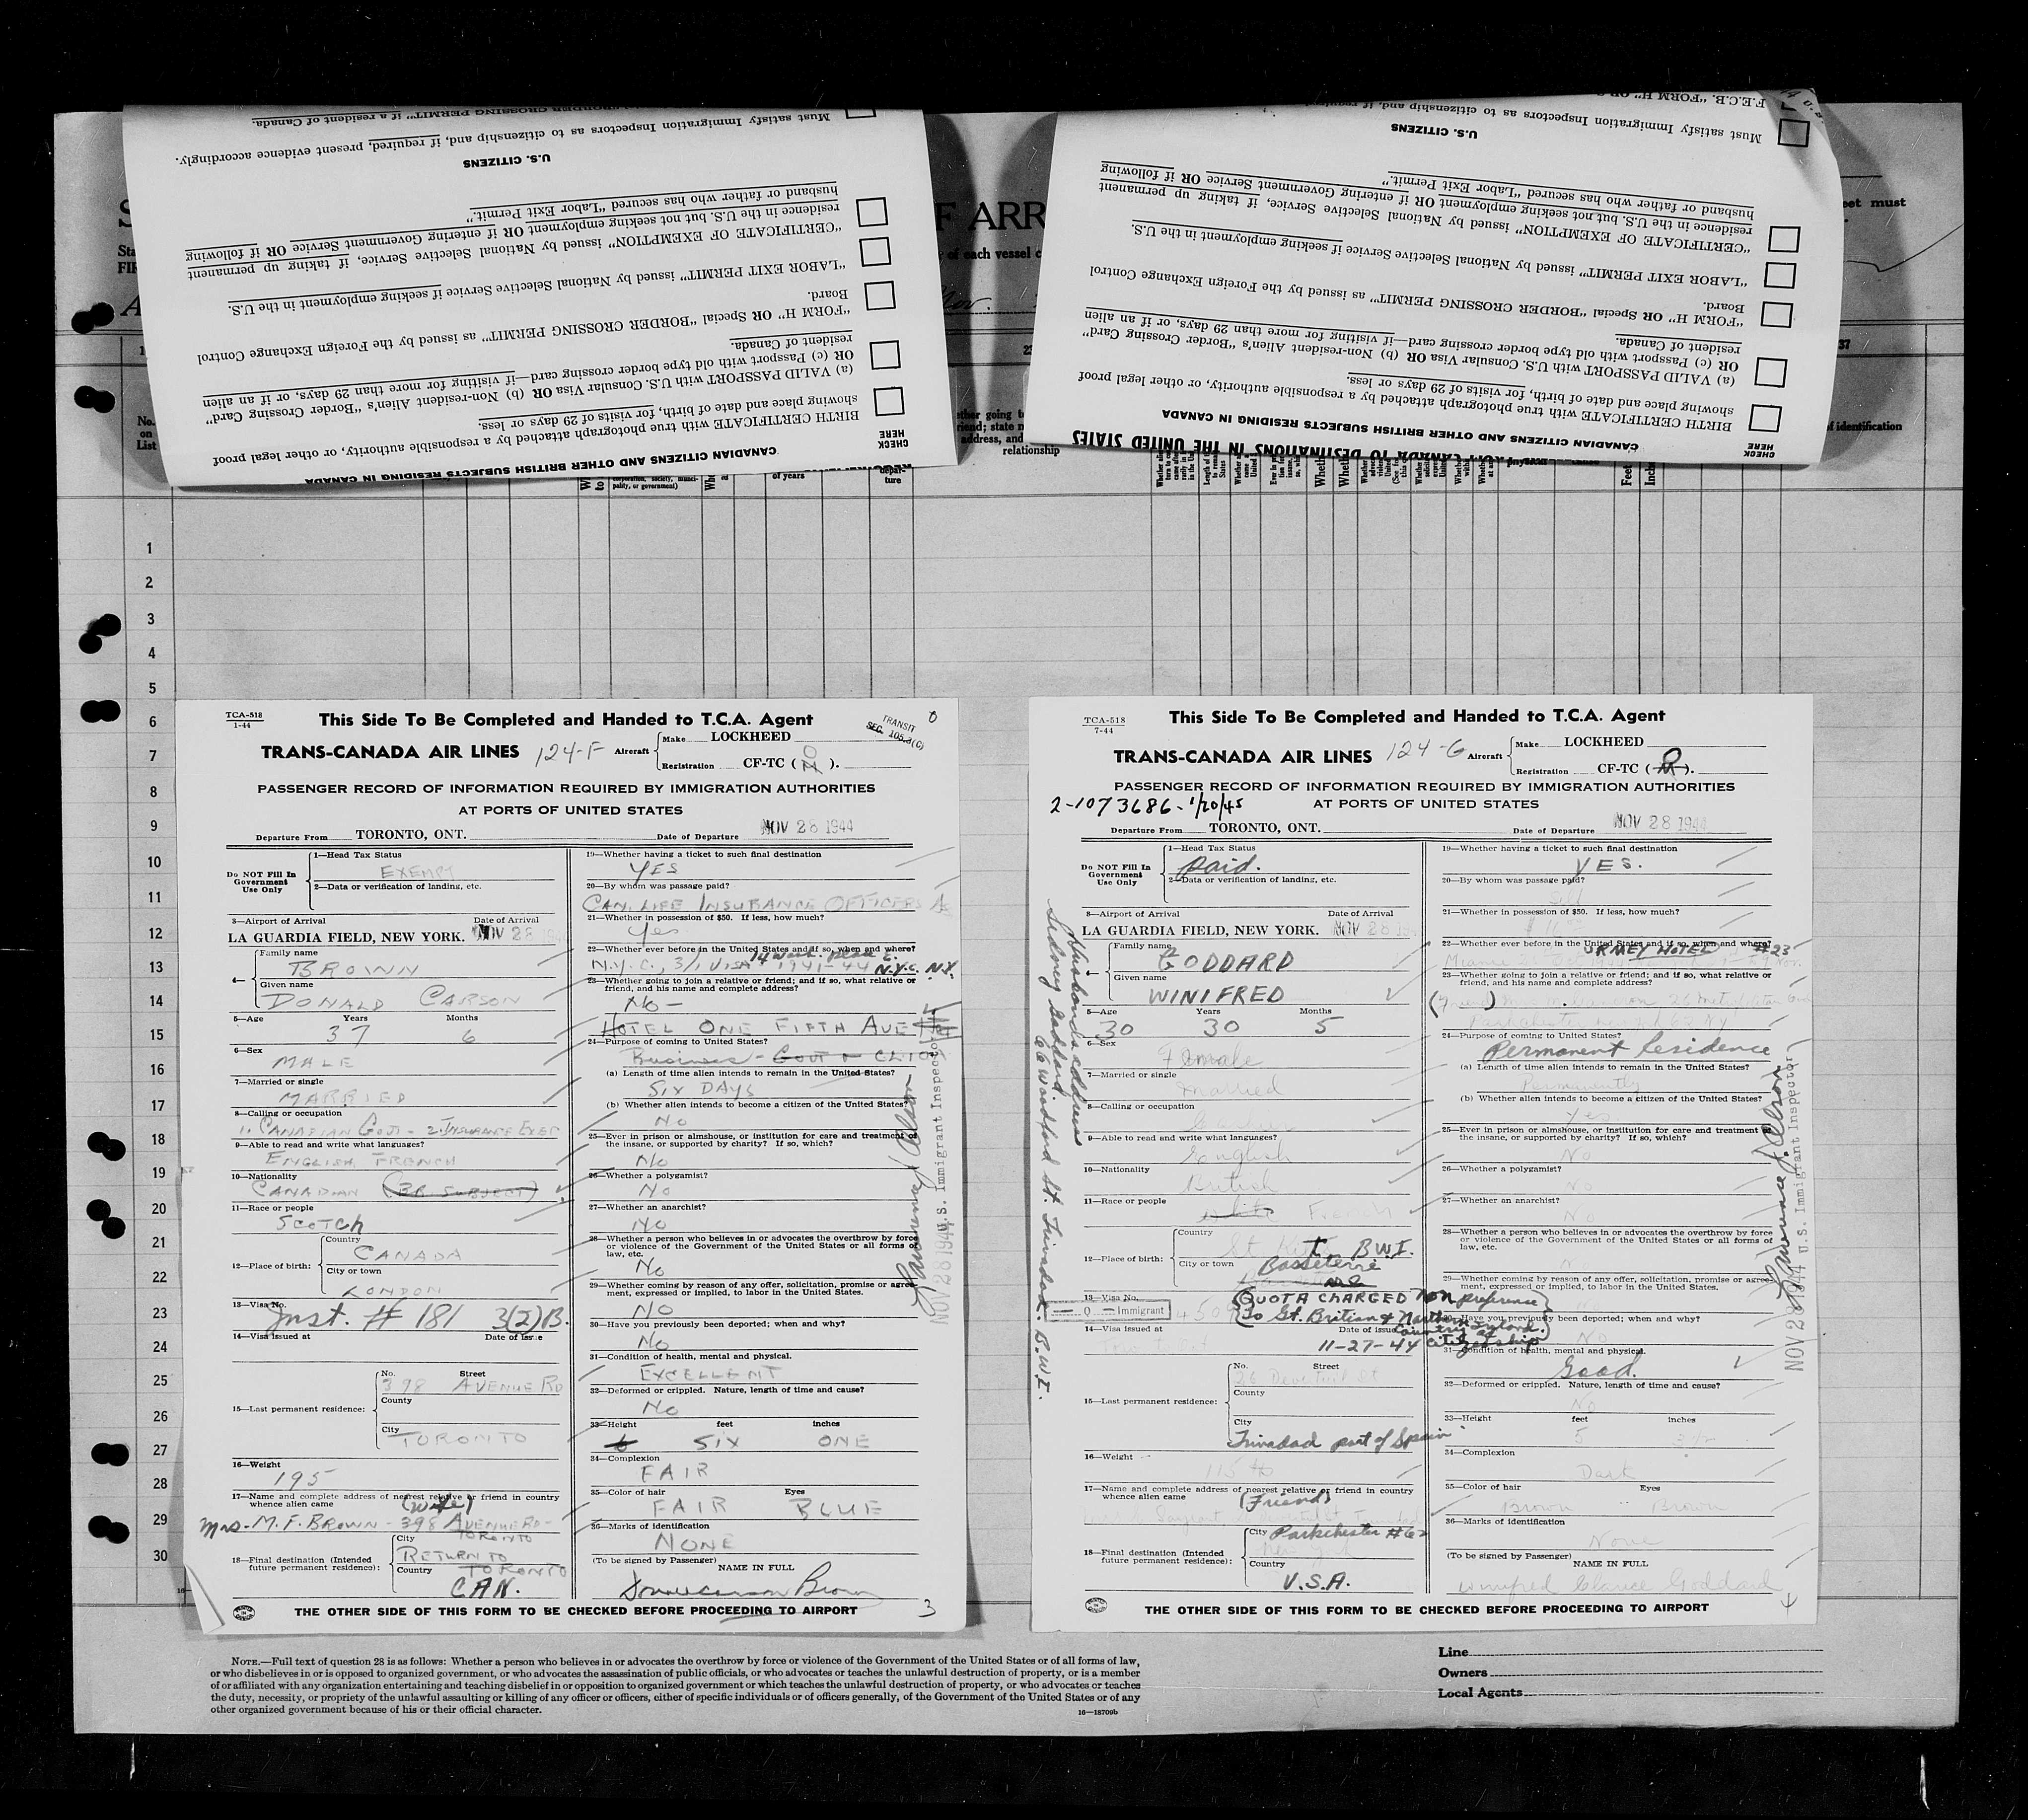 Must satisfy Immigration Inspectors as to citizenship and, if required, present evidence accordingly.
U.S. CITIZENS
husband or father who has secured "Labor Exit Permit."
residence in the U.S. but not seeking employment OR if entering Government Service OR if following
"CERTIFICATE OF EXEMPTION" issued by National Selective Service, if taking up permanent
"LABOR EXIT PERMIT" issued by National Selective Service if seeking employment in the U.S.
Board.
"FORM H" OR Special "BORDER CROSSING PERMIT" as issued by the Foreign Exchange Control
resident of Canada.
OR (c) Passport with old type border crossing card—if visiting for more than 29 days, or if an alien
(a) VALID PASSPORT with U.S. Consular Visa OR (b) Non-resident Alien's "Border Crossing Card"
showing place and date of birth, for visits of 29 days or less.
BIRTH CERTIFICATE with true photograph attached by a responsible authority, or other legal proof
CHECK HERE
CANADIAN CITIZENS AND OTHER BRITISH SUBJECTS RESIDING IN CANADA
F.E.C.B. "FORM H"
Must satisfy Immigration Inspectors as to citizenship and, if
U.S. CITIZENS
husband or father who has secured "Labor Exit Permit."
residence in the U.S. but not seeking employment OR if entering Government Service OR if following
"CERTIFICATE OF EXEMPTION" issued by National Selective Service, if taking up permanent
"LABOR EXIT PERMIT" issued by National Selective Service if seeking employment in the U.S.
Board.
"FORM H" OR Special "BORDER CROSSING PERMIT" as issued by the Foreign Exchange Control
resident of Canada.
OR (c) Passport with old type border crossing card—if visiting for more than 29 days, or if an alien
(a) VALID PASSPORT with U.S. Consular Visa OR (b) Non-resident Alien's "Border Crossing Card"
showing place and date of birth, for visits of 29 days or less.
BIRTH CERTIFICATE with true photograph attached by a responsible authority, or other legal proof
CHECK HERE
CANADIAN CITIZENS AND OTHER BRITISH SUBJECTS RESIDING IN CANADA
CANADA TO DESTINATIONS IN THE UNITED STATES
F ARR
eet must
of each vessel
No. on List
address, and
relationship
of years
identification
Feet
1
2
3
4
5
6
7
8
9
10
11
12
13
14
15
16
17
18
19
20
21
22
23
24
25
26
27
28
29
30
TCA-518
1-44
This Side To Be Completed and Handed to T.C.A. Agent
TRANSIT
SEC. 105.3(C)
TRANS-CANADA AIR LINES 124-F Aircraft
Make LOCKHEED
Registration CF-TC ( ).
PASSENGER RECORD OF INFORMATION REQUIRED BY IMMIGRATION AUTHORITIES
AT PORTS OF UNITED STATES
Departure From TORONTO, ONT. Date of Departure NOV 28 1944
Do NOT Fill In Government Use Only
1—Head Tax Status
EXEMPT
2—Data or verification of landing, etc.
3—Airport of Arrival Date of Arrival
LA GUARDIA FIELD, NEW YORK. NOV 28
4—
Family name
BROWN
Given name
DONALD CARSON
5—Age Years Months
37 6
6—Sex
MALE
7—Married or single
MARRIED
8—Calling or occupation
1. CANADIAN GOVT - 2. INSURANCE EXEC
9—Able to read and write what languages?
ENGLISH, FRENCH
10—Nationality
CANADIAN (BR SUBJECT)
11—Race or people
SCOTCH
12—Place of birth:
Country
CANADA
City or town
LONDON
13—Visa No.
Inst. # 181 3(2)B.
14—Visa issued at Date of Issue
15—Last permanent residence:
No. Street
398 AVENUE RD
County
City
TORONTO
16—Weight
195
17—Name and complete address of nearest relative or friend in country
whence alien came (wife)
Mrs. M. F. BROWN - 398 AVENUE RD -
TORONTO
18—Final destination (Intended future permanent residence):
City
RETURN TO
Country TORONTO
CAN.
19—Whether having a ticket to such final destination
YES
20—By whom was passage paid?
CAN. LIFE INSURANCE OFFICERS
21—Whether in possession of $50. If less, how much?
Yes
22—Whether ever before in the United States and if so, when and where?
N.Y.C., 1941-44 N.Y.C. N.Y.
23—Whether going to join a relative or friend; and if so, what relative or
friend, and his name and complete address?
NO —
HOTEL ONE FIFTH AVE
24—Purpose of coming to United States?
Business - GOVT
(a) Length of time alien intends to remain in the United States?
SIX DAYS
(b) Whether alien intends to become a citizen of the United States?
NO
25—Ever in prison or almshouse, or institution for care and treatment of
the insane, or supported by charity? If so, which?
NO
26—Whether a polygamist?
NO
27—Whether an anarchist?
NO
28—Whether a person who believes in or advocates the overthrow by force
or violence of the Government of the United States or all forms of
law, etc.
NO
29—Whether coming by reason of any offer, solicitation, promise or agree-
ment, expressed or implied, to labor in the United States.
NO
30—Have you previously been deported; when and why?
NO
31—Condition of health, mental and physical.
EXCELLENT
32—Deformed or crippled. Nature, length of time and cause?
NO
33—Height feet inches
SIX ONE
34—Complexion
FAIR
35—Color of hair Eyes
FAIR BLUE
36—Marks of identification
NONE
(To be signed by Passenger) NAME IN FULL
NOV 28 1944 U.S. Immigrant Inspector
THE OTHER SIDE OF THIS FORM TO BE CHECKED BEFORE PROCEEDING TO AIRPORT
3
TCA-518
7-44
This Side To Be Completed and Handed to T.C.A. Agent
TRANS-CANADA AIR LINES 124-G Aircraft
Make LOCKHEED
Registration CF-TC ( ).
PASSENGER RECORD OF INFORMATION REQUIRED BY IMMIGRATION AUTHORITIES
AT PORTS OF UNITED STATES
2-1073686-1/20/45
Departure From TORONTO, ONT. Date of Departure NOV 28 1944
Do NOT Fill In Government Use Only
1—Head Tax Status
Paid.
2—Data or verification of landing, etc.
3—Airport of Arrival Date of Arrival
LA GUARDIA FIELD, NEW YORK. NOV 28
4—
Family name
GODDARD
Given name
WINIFRED
5—Age Years Months
30 30 5
6—Sex
Female
7—Married or single
Married
8—Calling or occupation
9—Able to read and write what languages?
English
10—Nationality
British
11—Race or people
White French
12—Place of birth:
Country
St Kitt B.W.I.
City or town Basseterre
13—Visa No.
Q — Immigrant
(QUOTA CHARGED non preference
to Gt. Britian & North
14—Visa issued at Date of issue
11-27-44
15—Last permanent residence:
No. Street
County
City
Trinadad port of Spain
16—Weight
115
17—Name and complete address of nearest relative or friend in country
whence alien came (Friend)
18—Final destination (Intended future permanent residence):
City Parkchester #62
New York
Country
U.S.A.
Husbands address
Sidney Goddard.
66 Woodford St. Trinadad. B.W.I.
19—Whether having a ticket to such final destination
YES.
20—By whom was passage paid?
Self
21—Whether in possession of $50. If less, how much?
22—Whether ever before in the United States and if so, when and where?
URMEY HOTEL
Miami
23—Whether going to join a relative or friend; and if so, what relative or
friend, and his name and complete address?
(Friend)
24—Purpose of coming to United States?
Permanent Residence
(a) Length of time alien intends to remain in the United States?
Permanently
(b) Whether alien intends to become a citizen of the United States?
Yes
25—Ever in prison or almshouse, or institution for care and treatment of
the insane, or supported by charity? If so, which?
No
26—Whether a polygamist?
No
27—Whether an anarchist?
No
28—Whether a person who believes in or advocates the overthrow by force
or violence of the Government of the United States or all forms of
law, etc.
29—Whether coming by reason of any offer, solicitation, promise or agree-
ment, expressed or implied, to labor in the United States.
30—Have you previously been deported; when and why?
No
31—Condition of health, mental and physical.
Good.
32—Deformed or crippled. Nature, length of time and cause?
No
33—Height feet inches
5
34—Complexion
Dark
35—Color of hair Eyes
Brown Brown
36—Marks of identification
None
(To be signed by Passenger) NAME IN FULL
Winifred Goddard
NOV 28 1944 U.S. Immigrant Inspector
THE OTHER SIDE OF THIS FORM TO BE CHECKED BEFORE PROCEEDING TO AIRPORT
4
NOTE.—Full text of question 28 is as follows: Whether a person who believes in or advocates the overthrow by force or violence of the Government of the United States or of all forms of law,
or who disbelieves in or is opposed to organized government, or who advocates the assassination of public officials, or who advocates or teaches the unlawful destruction of property, or is a member
of or affiliated with any organization entertaining and teaching disbelief in or opposition to organized government or which teaches the unlawful destruction of property, or who advocates or teaches
the duty, necessity, or propriety of the unlawful assaulting or killing of any officer or officers, either of specific individuals or of officers generally, of the Government of the United States or of any
other organized government because of his or their official character.
16—18709b
Line
Owners
Local Agents